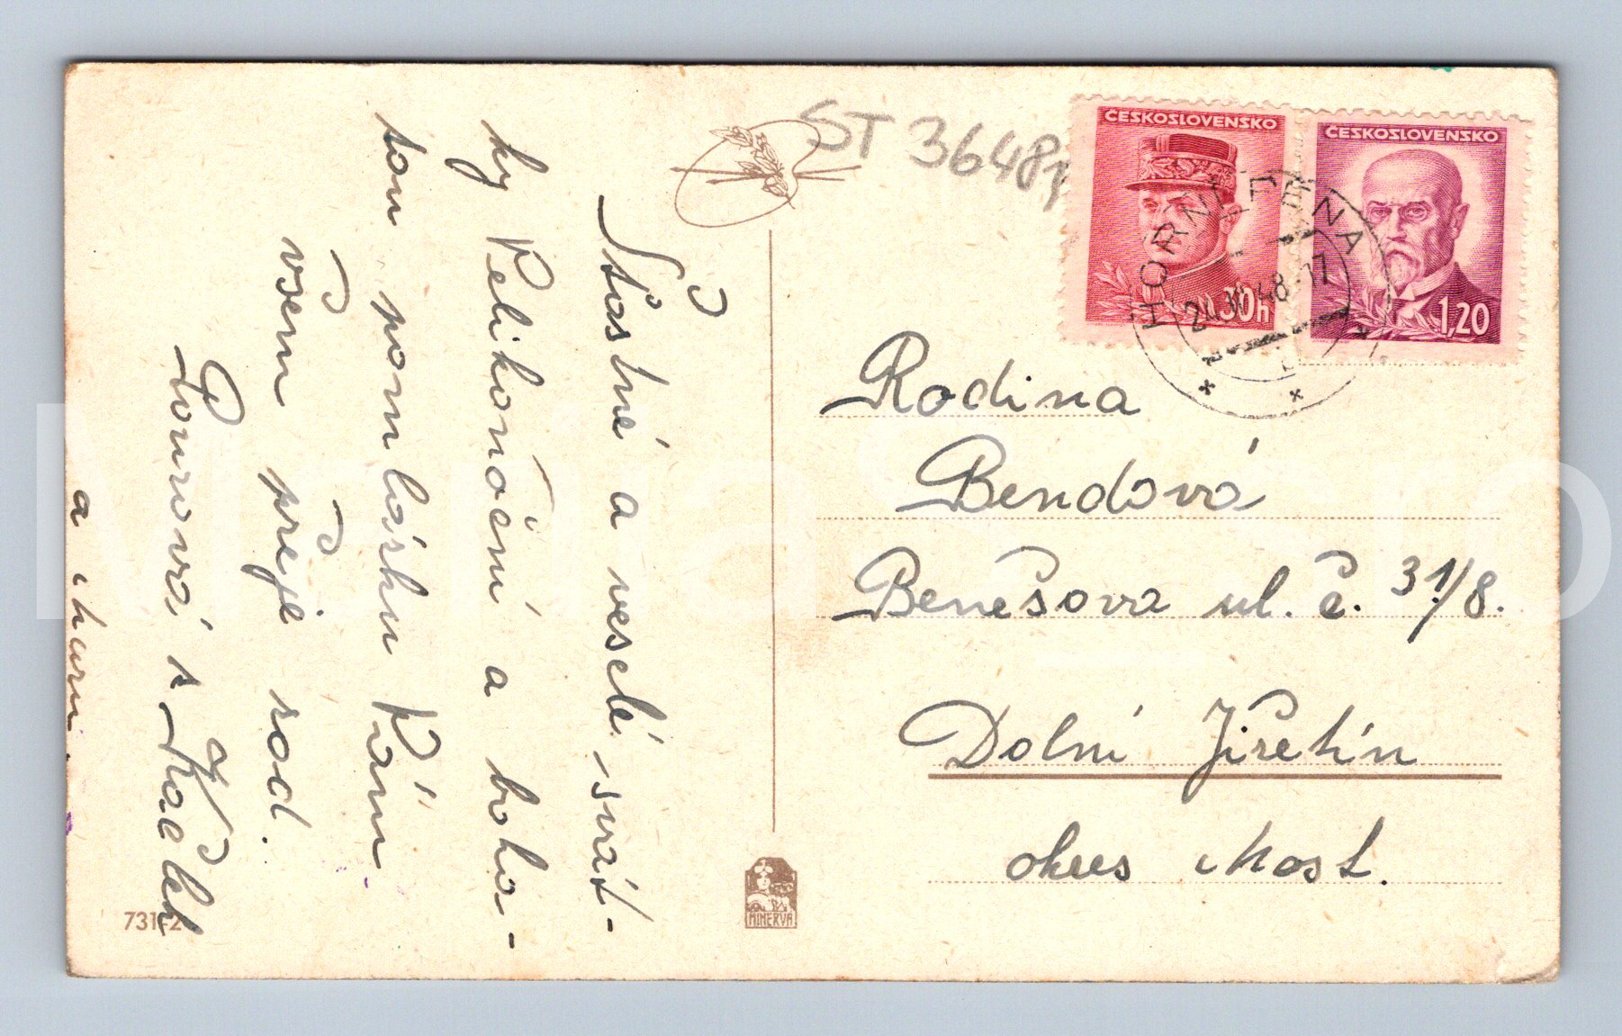 Šťastné a veselé svát-
ky Velikonoční a boha-
tou pomlásku Vám
všem přeje rod.
Vourová s Kaček
a
ST 3648
ČESKOSLOVENSKO
30h
ČESKOSLOVENSKO
1,20
HORNÍ
48-17
Rodina
Bendová
Benešova ul. č. 31/8.
Dolní Jiřetín
okres Most.
MINERVA
731